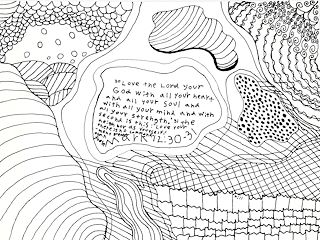 30 Love the Lord your
God with all your heart
and all your soul and
with all your mind and with
all your strength.' 31 the
second is this: 'Love your
MARK 12:30-31